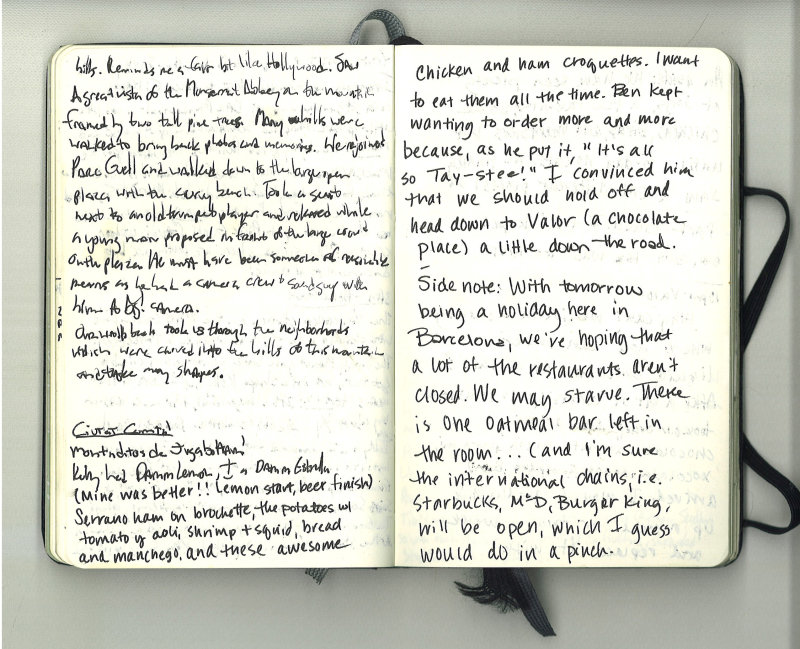 hills. Reminds me a fair bit like Hollywood. Saw
A great vista of the Monserrat Abbey on the mountain
framed by two tall pine trees. Many were
walked to bring back photos and memories. We rejoined
Parc Guell and walked down to the large open
plaza with the curvy bench. Took a seat
next to an old trumpet player and relaxed while
a young man proposed in front of the large crowd
on the plaza. He must have been someone of
means as he had a camera crew + sound guy with
him to camera.
Our walk back took us through the neighborhoods
which were carved into the hills of this mountain
many shapes.
Ciutat Comtal
Montaditos de
Kelly had Damm Lemon, I a Damm Estrella
(Mine was better!! Lemon start, beer finish)
Serrano ham on brochette, the potatoes w/
tomato y aoli, shrimp + squid, bread
and manchego, and these awesome
Chicken and ham croquettes. I want
to eat them all the time. Ben kept
wanting to order more and more
because, as he put it, "It's all
so Tay-stee!" I convinced him
that we should hold off and
head down to Valor (a chocolate
place) a little down the road.
–
Side note: With tomorrow
being a holiday here in
Barcelona, we're hoping that
a lot of the restaurants aren't
closed. We may starve. There
is one oatmeal bar left in
the room... (and I'm sure
the international chains, i.e.
Starbucks, McD, Burger King,
will be open, which I guess
would do in a pinch.